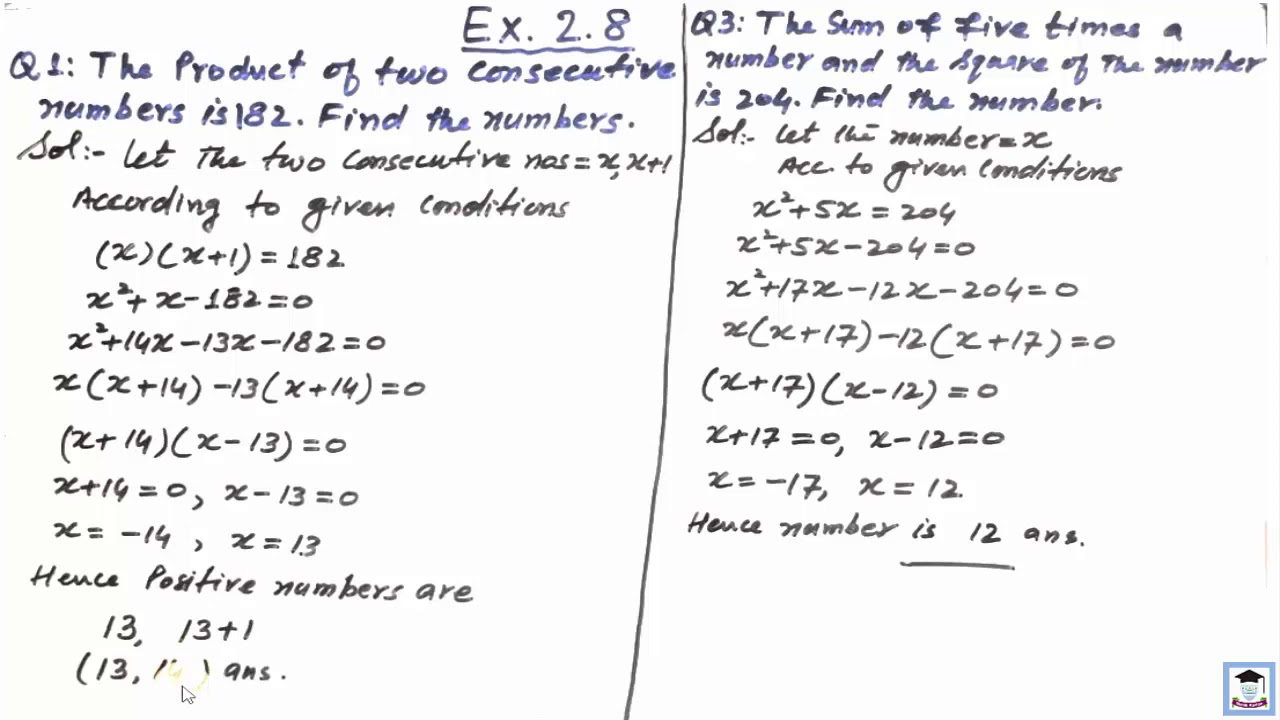 Ex. 2.8
Q1: The Product of two Consecutive
numbers is 182. Find the numbers.
Sol:- Let The two Consecutive nos = x, x+1
According to given Conditions
(x)(x+1) = 182
x²+x-182=0
x²+14x-13x-182=0
x(x+14)-13(x+14)=0
(x+14)(x-13)=0
x+14=0, x-13=0
x= -14, x=13
Hence Positive numbers are
13, 13+1
(13, 14) ans.
Q3: The Sum of five times a
number and the square of The number
is 204. Find the number.
Sol:- Let the number=x
Acc. to given Conditions
x²+5x=204
x²+5x-204=0
x²+17x-12x-204=0
x(x+17)-12(x+17)=0
(x+17)(x-12)=0
x+17=0, x-12=0
x= -17, x=12
Hence number is 12 ans.